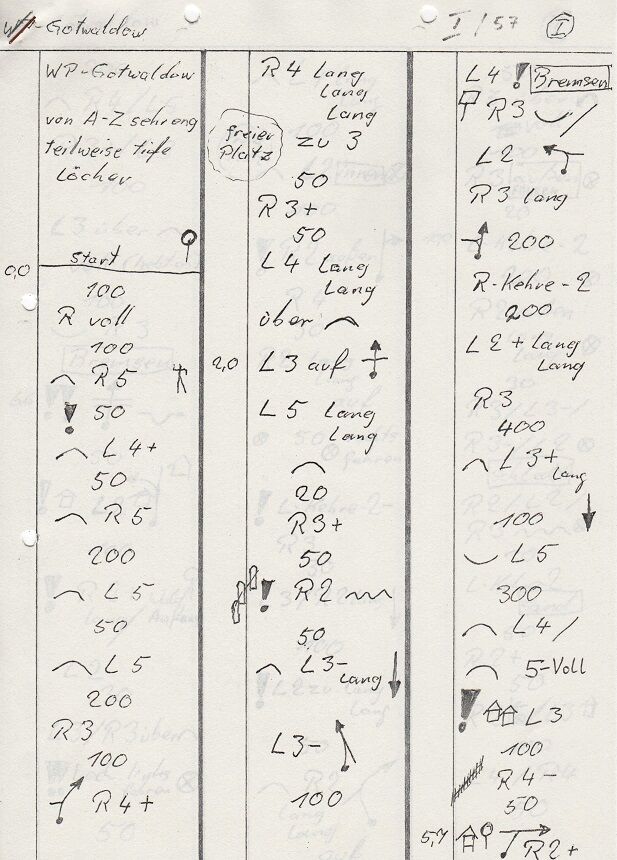 WP-Gotwaldow
I/57
I
WP-Gotwaldow
von A-Z sehr eng
teilweise tiefe
Löcher
start
0,0
100
R voll
100
R5
50
L4+
50
R5
200
L5
50
L5
200
R3
100
R4+
R4 lang
lang
lang
freier
Platz
zu 3
50
R3+
50
L4 lang
lang
über
2,0
L3 auf
L5 lang
lang
20
R3+
50
! R2
50
L3-
lang
L3-
100
L4 ! Bremsen
R3 /
L2
R3 lang
200
R-Kehre-2
200
L2+ lang
lang
R3
400
L3+
lang
100
L5
300
L4/
5-Voll
! L3
100
R4-
50
5,7
R2+